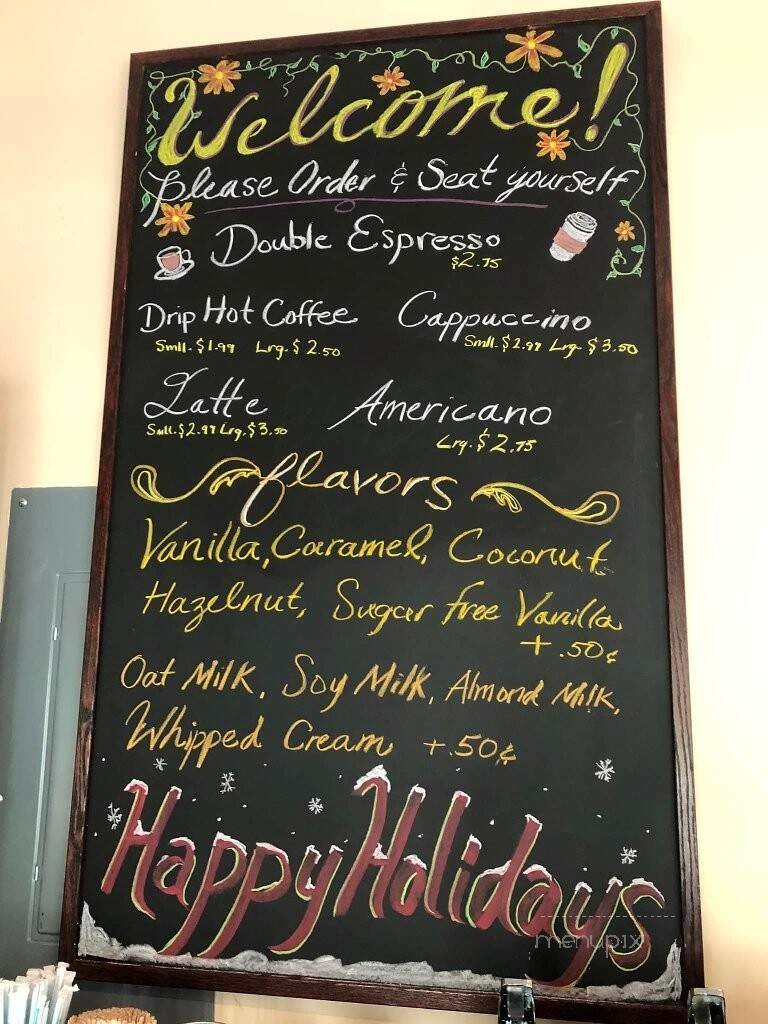 Welcome!
Please Order & Seat yourself
Double Espresso
$2.75
Drip Hot Coffee Cappuccino
Smll. $1.99 Lrg. $2.50 Smll. $2.99 Lrg. $3.50
Latte Americano
Smll. $2.99 Lrg. $3.50 Lrg. $2.75
flavors
Vanilla, Caramel, Coconut
Hazelnut, Sugar free Vanilla
+ .50¢
Oat Milk, Soy Milk, Almond Milk,
Whipped Cream +.50¢
Happy Holidays
menupix